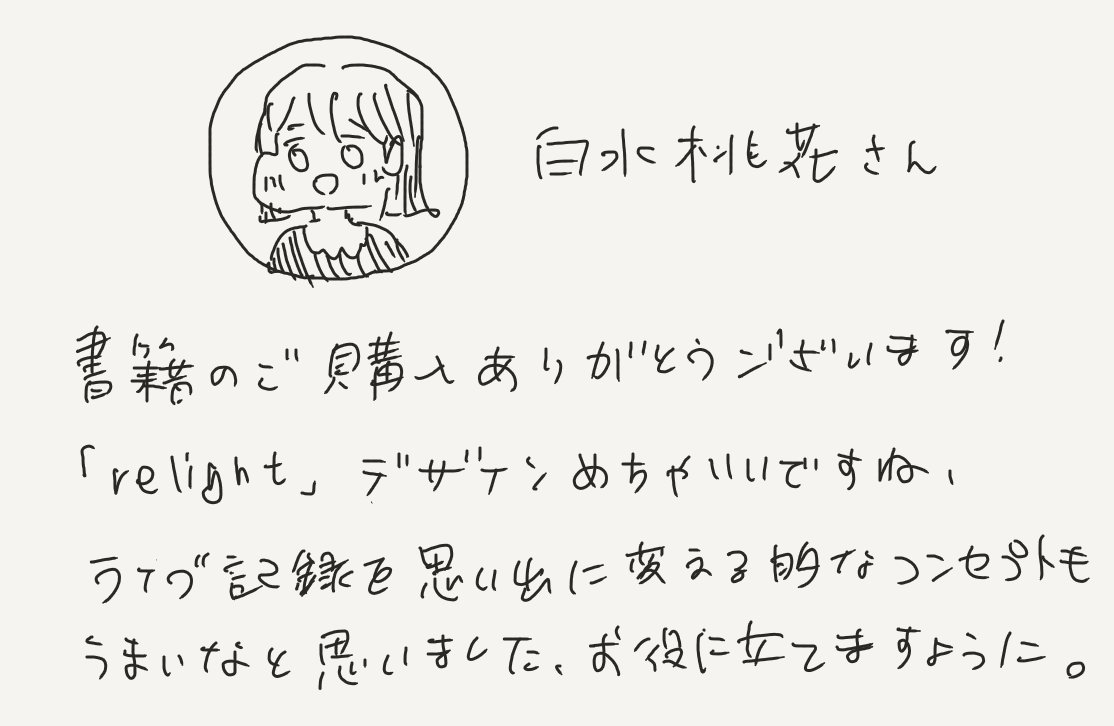 白水桃花さん
書籍のご購入ありがとうございます！
「relight」デザインめちゃいいですね、
ライブ記録を思い出に変える的なコンセプトも
うまいなと思いました、お役に立てますように。